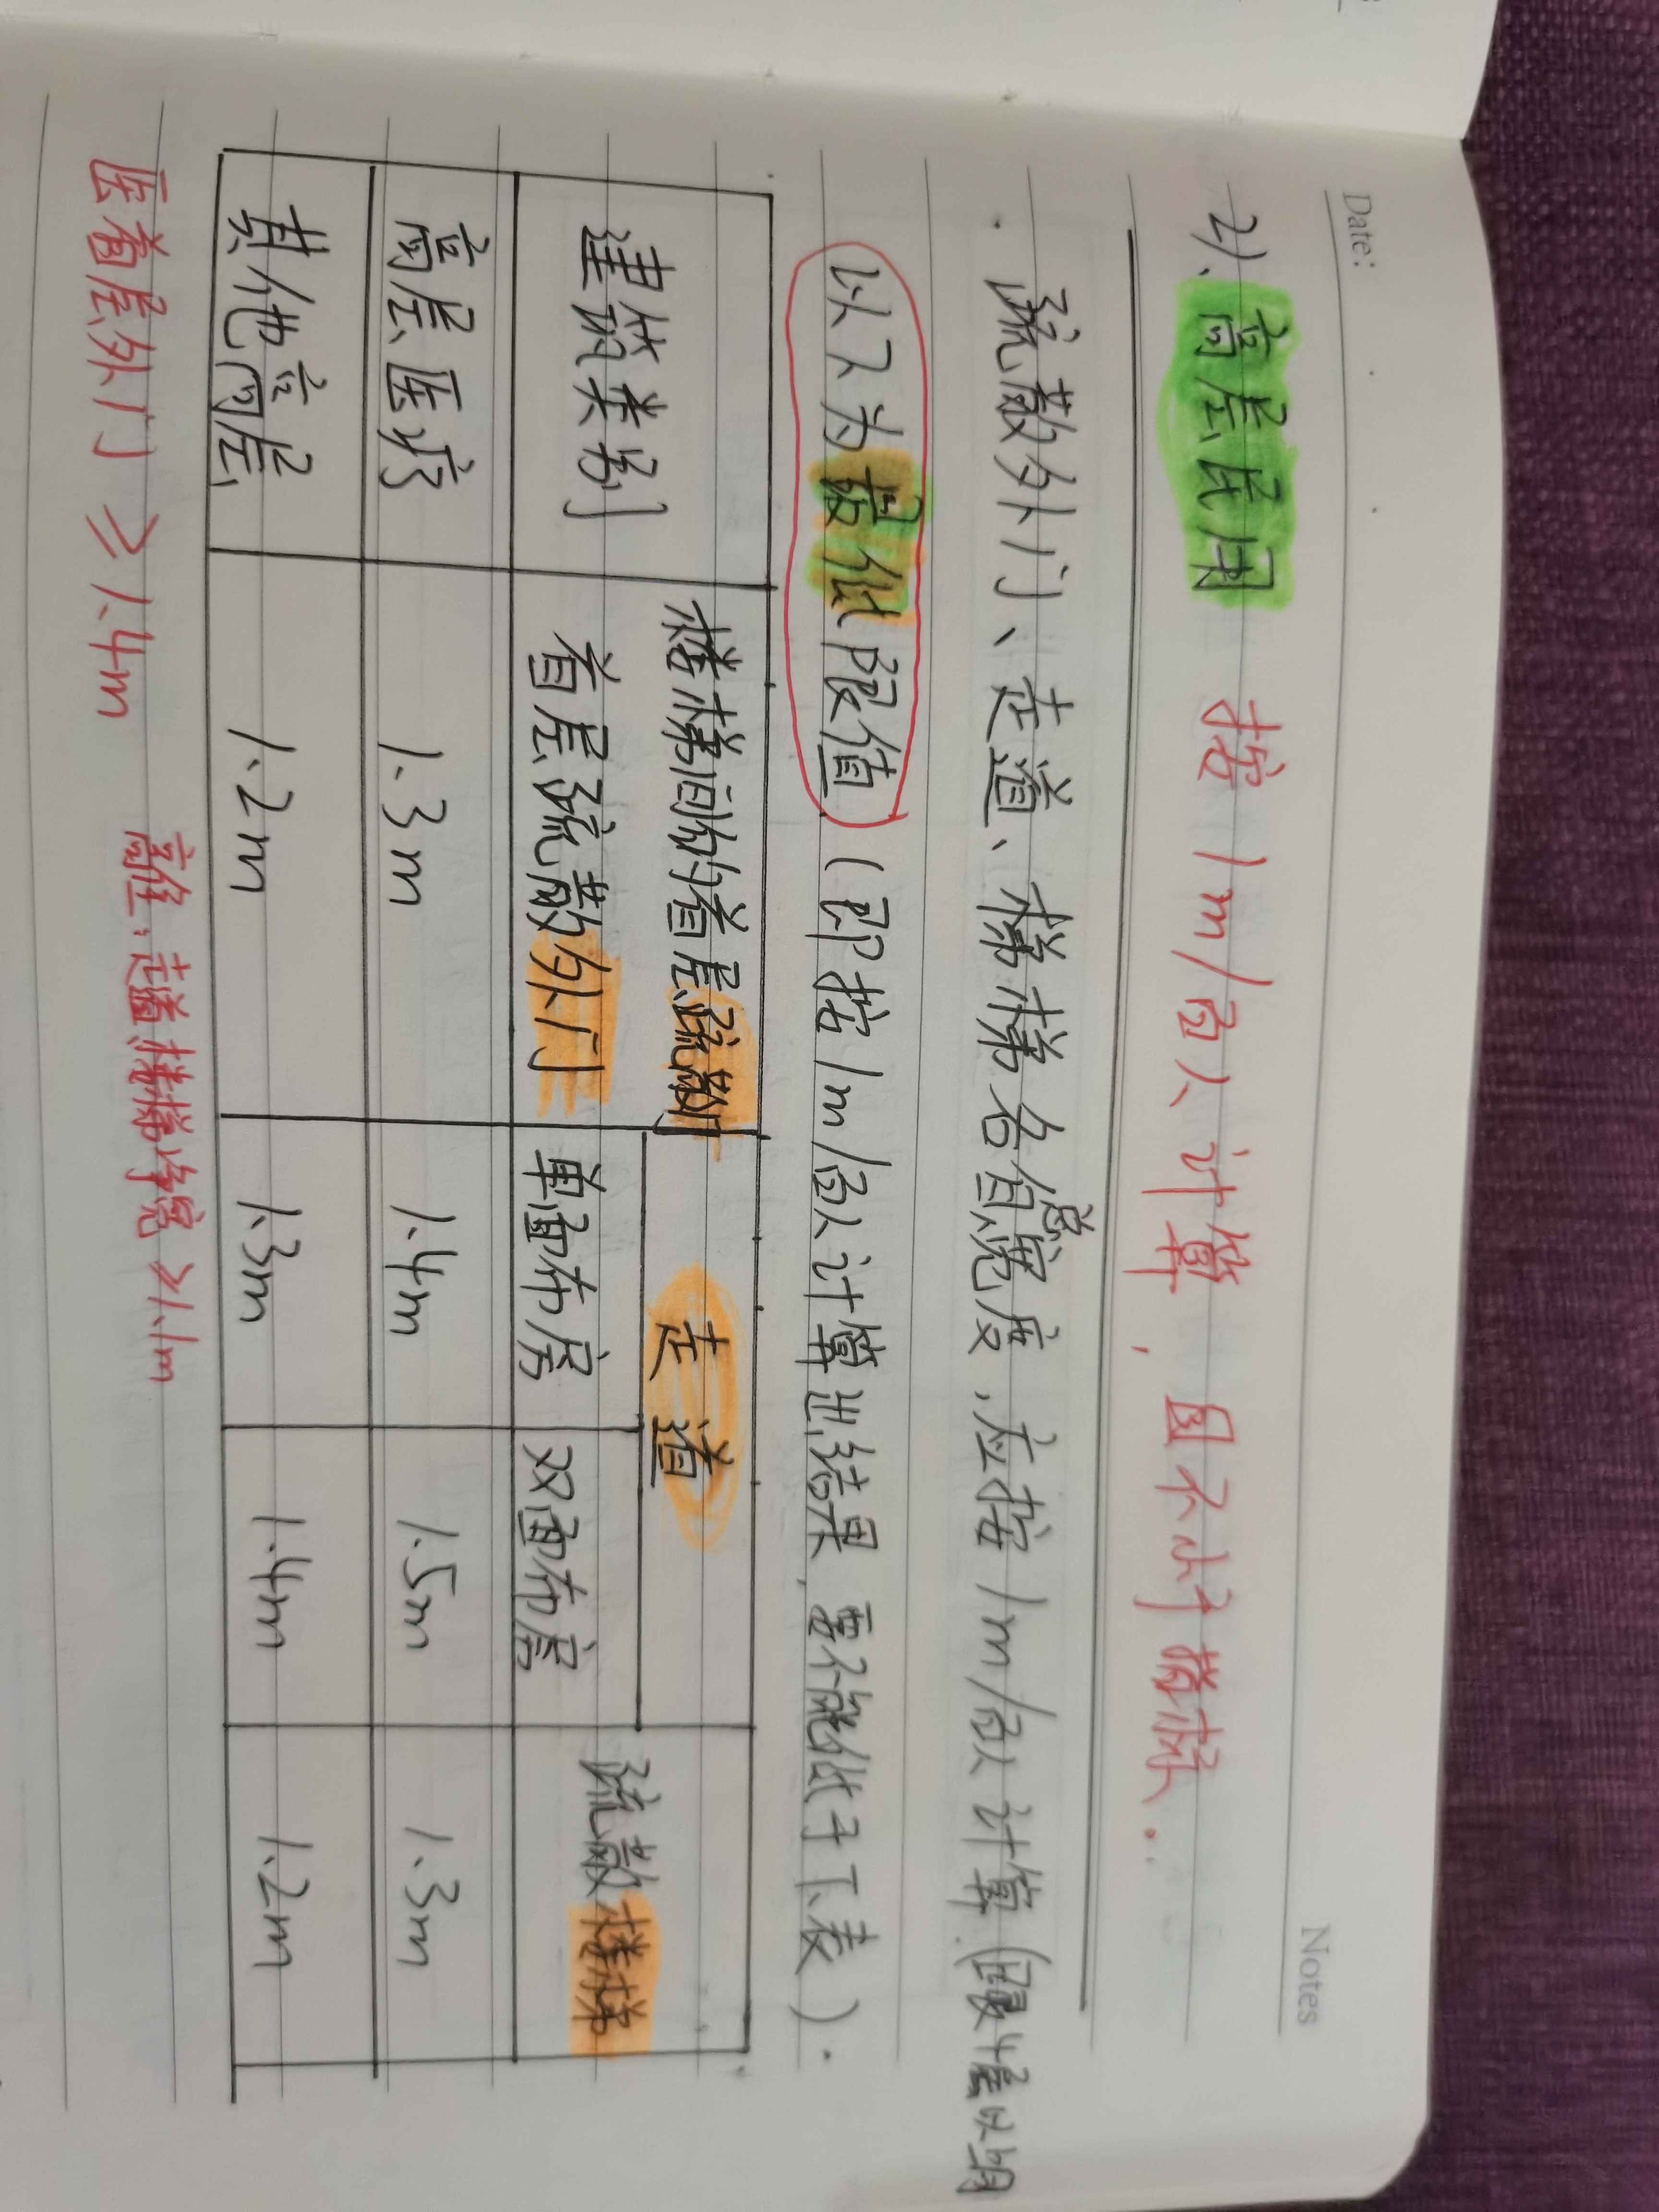 Date:
Notes
2)、高层民用 按1m/百人计算，且不小于
疏散外门、走道、楼梯各自总宽度，应按1m/百人计算
以下为最低限值（即按1m/百人计算出结果，要不能低于下表）.
建筑类别 楼梯间的首层疏散门 首层疏散外门 走道 疏散楼梯
单面布房 双面布房
高层医疗 1.3m 1.4m 1.5m 1.3m
其他高层 1.2m 1.3m 1.4m 1.2m
高住:走道楼梯净宽≥1.1m
医首层外门≥1.4m